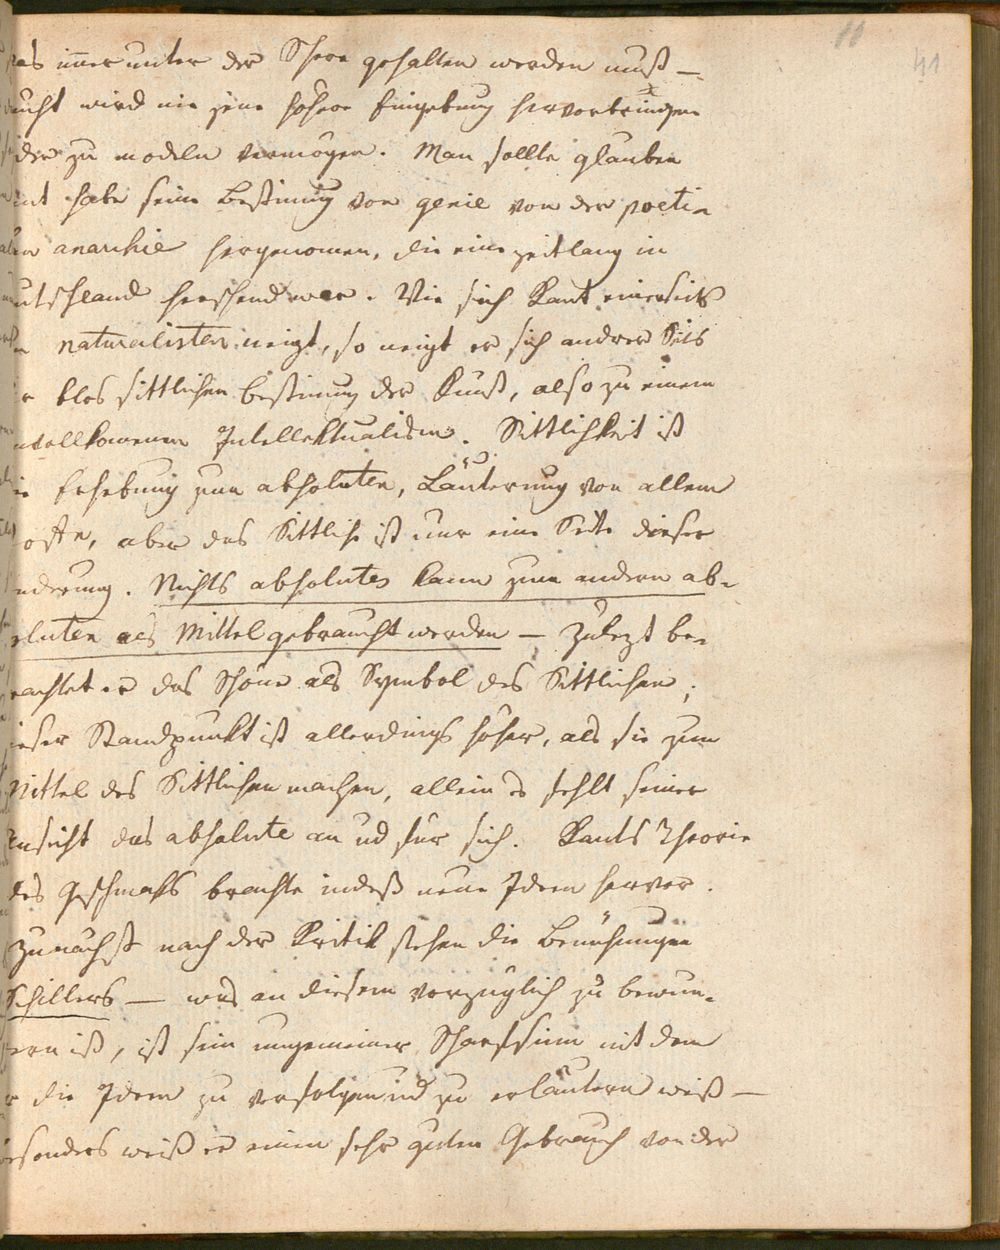 11
41
as immer unter der Schere gehalten werden muß —
aucht wird nie jene höhere Eingebung hervorbringen
die zu modeln vermögen. Man sollte glauben
ant habe seine Bestimung von genie von der poeti-
en anarchie hergenomen, die eine zeitlang in
utschland herschend war. Wie sich Kant einerseits
naturalisten neigt, so neigt er sich andrer Seits
r blos sittlichen bestimung der Kunst, also zu einem
vollkomenen Intellektualism. Sittlichkeit ist
ie Erhebung zum absoluten, Läuterung von allem
aber das Sittliche ist nur eine Seite dieser
nderung. Nichts absolutes kann zum andern ab-
oluten als Mittel gebraucht werden — Zulezt be-
rachtet er das Schöne als Symbol des Sittlichen,
ieser Standpunkt ist allerdings höher, als sie zum
Mittel des Sittlichen machen, allein es fehlt seiner
Ansicht das absolute an und für sich. Kants Theorie
des Geschmaks brachte indeß neue Ideen hervor.
Zunächst nach der Kritik stehen die Bemühungen
Schillers — was an diesem vorzüglich zu bewun-
ern ist, ist sein ungemeiner Scharfsinn mit dem
r die Ideen zu verfolgen und zu erläutern weiß —
esonders weiß er einen sehr guten Gebrauch von der